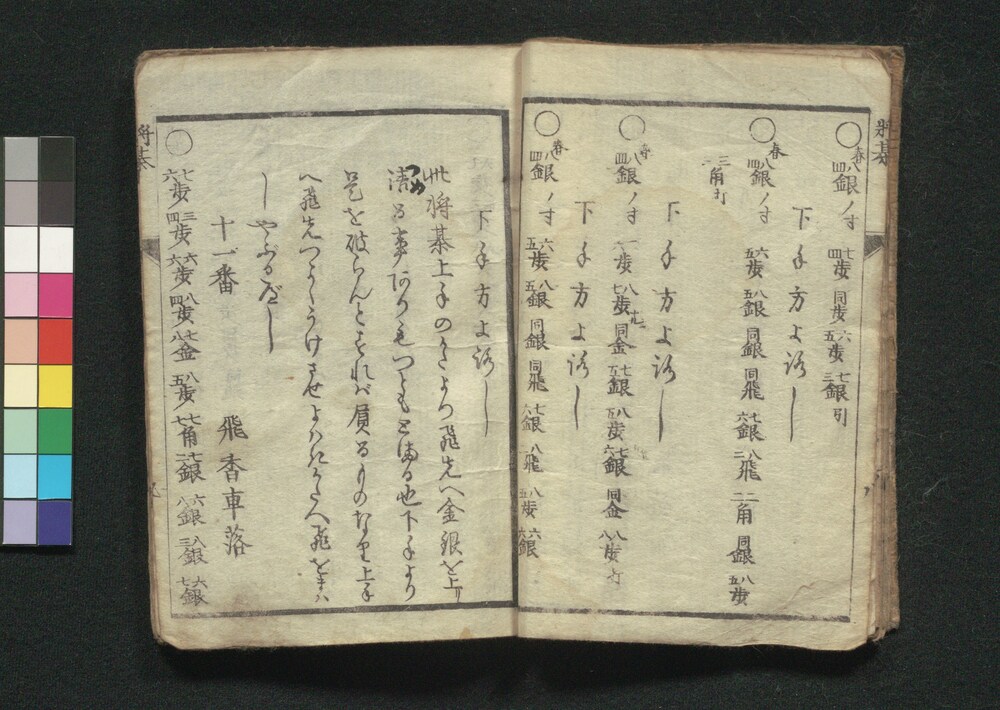 将棊
八四銀ノ時 七四歩 同歩 六五歩 七三銀引
下手方よろし
八四銀ノ時 六五歩 八五銀 同銀 同飛 七六銀 八三飛 二二角 同銀 八五歩
三一角打
下手方よろし
八四銀ノ時 一歩 八七歩 同金 七五銀 八五歩 七六銀 同金 八八歩打
下手方よろし
八四銀ノ時 六五歩 八五銀 同銀 同飛 七六銀 八飛 八五歩 六六銀
下手方よろし
此将棊上手のかたより飛先へ金銀を上り
る事ありてもつともと濟る也下手より
是を破らんとすれバ負るものなり上手
へ飛先つようけさせよハきかたへ飛をまハ
しやぶるべし
十一番 飛香車落
七六歩 三四歩 六六歩 八四歩 七八金 八五歩 七七角 七二銀 六八銀 八三銀 六七銀
将棊